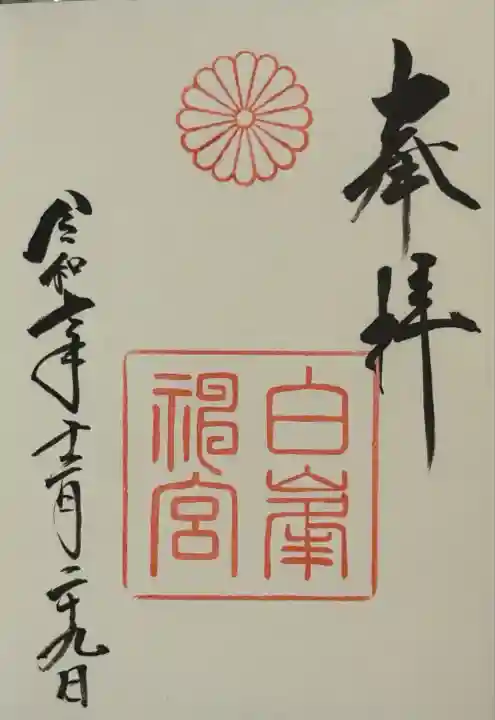 奉拝
白峯
神宮
令和六年十二月二十九日